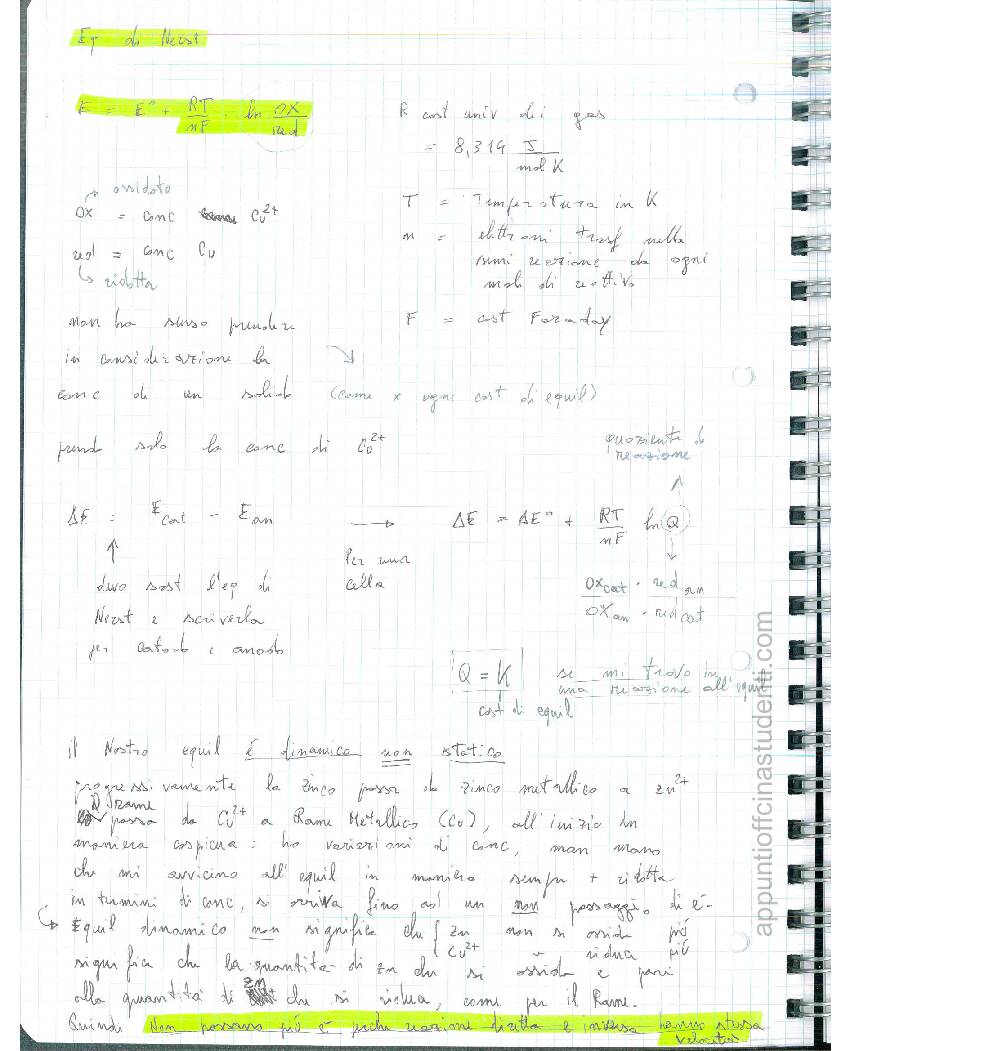 Eq di Nerst
E = E° + RT/nF · ln ox/red
R cost univ dei gas
= 8,314 J/mol K
ossidato
ox = conc Cu²⁺
red = conc Cu
ridotta
T = Temperatura in K
n = elettroni trasf nella
semi reazione da ogni
mole di reattivo
F = cost Faraday
non ha senso prendere
in considerazione la
conc di un solido (come x ogni cost di equil)
prendo solo la conc di Cu²⁺
quoziente di
reazione
ΔE = Ecat - Ean → ΔE = ΔE° + RT/nF ln Q
Per una
cella
devo sost l'eq di
Nerst e scriverla
per catodo e anodo
oxcat · redan
oxan · redcat
Q = K se mi trovo in
una reazione all'equil
cost di equil
il Nostro equil è dinamico non statico
progressivamente lo zinco passa da zinco metallico a Zn²⁺
il rame
passa da Cu²⁺ a Rame Metallico (Cu), all'inizio in
maniera cospicua: ho variazioni di conc, man mano
che mi avvicino all'equil in maniera sempre + ridotta
in termini di conc, si arriva fino ad un non passaggio di e-
Equil dinamico non significa che { Zn non si ossida più
Cu²⁺ " riduca più
significa che la quantità di Zn che si ossida è pari
alla quantità di Zn che si riduce, come per il Rame.
Quindi Non passano più e⁻ perché reazione diretta e inversa hanno stessa
velocità
appuntioffcinastudenti.com